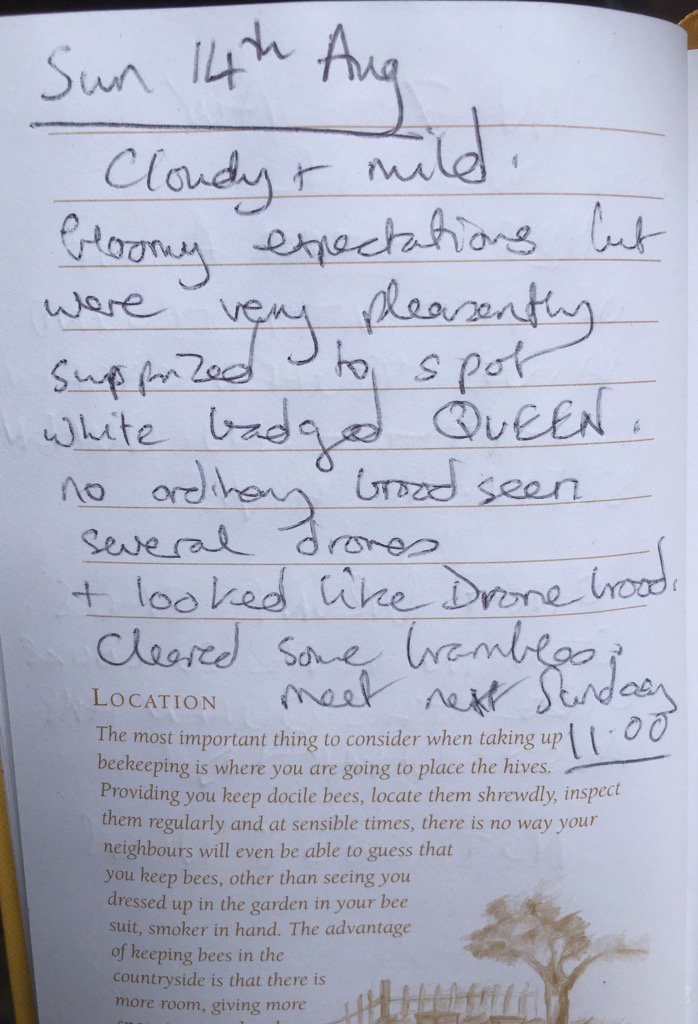 Sun 14th Aug
Cloudy + mild.
Gloomy expectations but
were very pleasantly
surprized to spot
white badged QUEEN.
no ordinary brood seen
several drones
+ looked like Drone brood.
Cleared some brambles.
meet next Sunday
11.00
LOCATION
The most important thing to consider when taking up
beekeeping is where you are going to place the hives.
Providing you keep docile bees, locate them shrewdly, inspect
them regularly and at sensible times, there is no way your
neighbours will even be able to guess that
you keep bees, other than seeing you
dressed up in the garden in your bee
suit, smoker in hand. The advantage
of keeping bees in the
countryside is that there is
more room, giving more